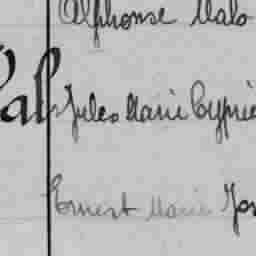 Alphonse Malo
Jules Marie Cyprie
Ernest Marie Jos